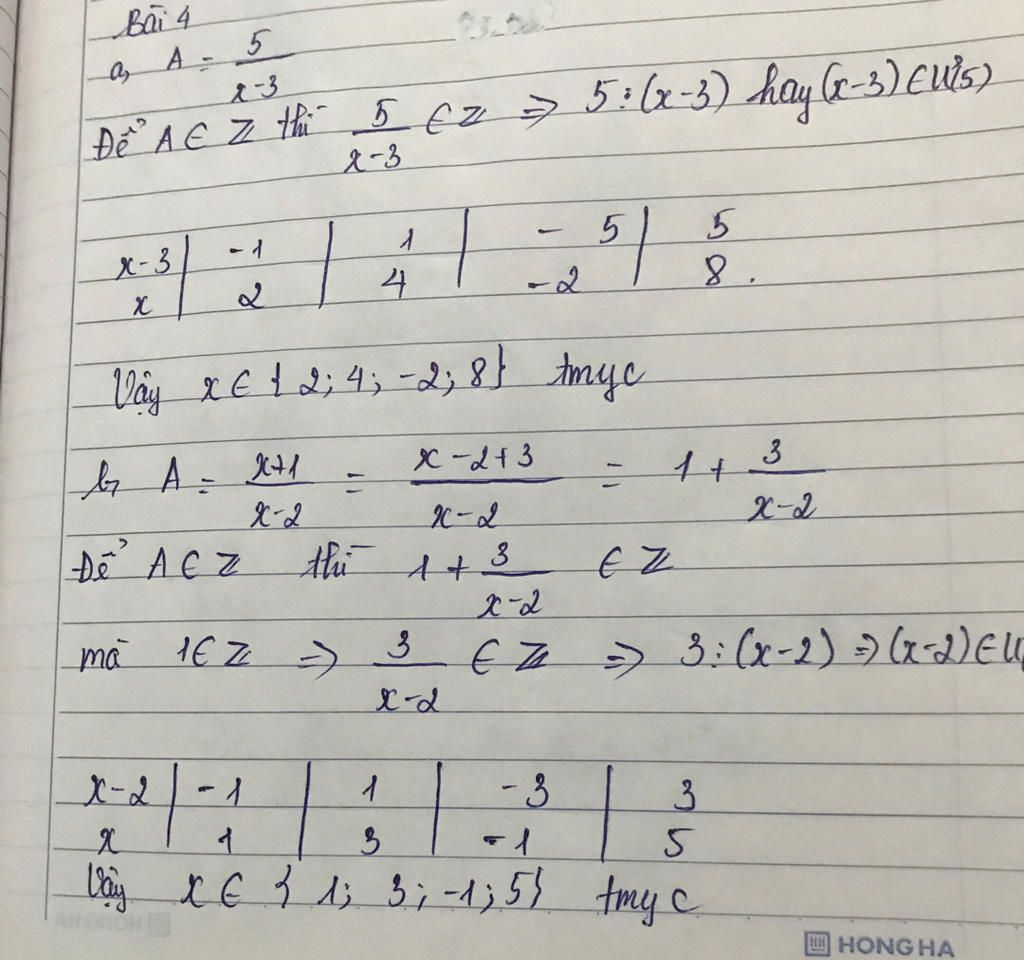 Bài 4
a, A = 5/(x-3)
Để A ∈ Z thì 5/(x-3) ∈ Z => 5 ⋮ (x-3) hay (x-3) ∈ Ư(5)
x-3 | -1 | 1 | -5 | 5
x | 2 | 4 | -2 | 8.
Vậy x ∈ { 2; 4; -2; 8} tmyc
b, A = (x+1)/(x-2) = (x-2+3)/(x-2) = 1 + 3/(x-2)
Để A ∈ Z thì 1 + 3/(x-2) ∈ Z
mà 1 ∈ Z => 3/(x-2) ∈ Z => 3 ⋮ (x-2) => (x-2) ∈ Ư
x-2 | -1 | 1 | -3 | 3
x | 1 | 3 | -1 | 5
Vậy x ∈ { 1; 3; -1; 5} tmyc
HH HONG HA